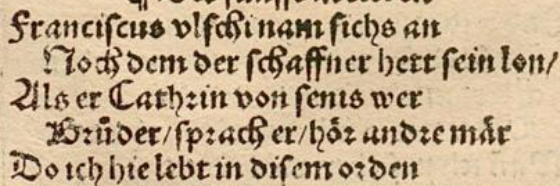 Franciscus vlschi nam sichs an
Noch dem der schaffner hett sein lon/
Als er Cathrin von senis wer
Brůder/ sprach er/ hör andre mär
Do ich hie lebt in disem orden